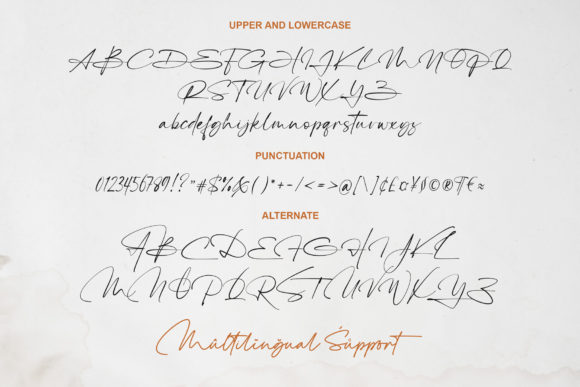 UPPER AND LOWERCASE
ABCDEFGHIJKLMNOPQ
RSTUVWXYZ
abcdefghijklmnopqrstuvwxyz
PUNCTUATION
0123456789!?"#$%&()*+-/<=>@[\]¢£¤¥§©®¶€≈
ALTERNATE
ABCDEFGHIJKL
MNOPQRSTUVWXYZ
Mûltilinğual Śùppört